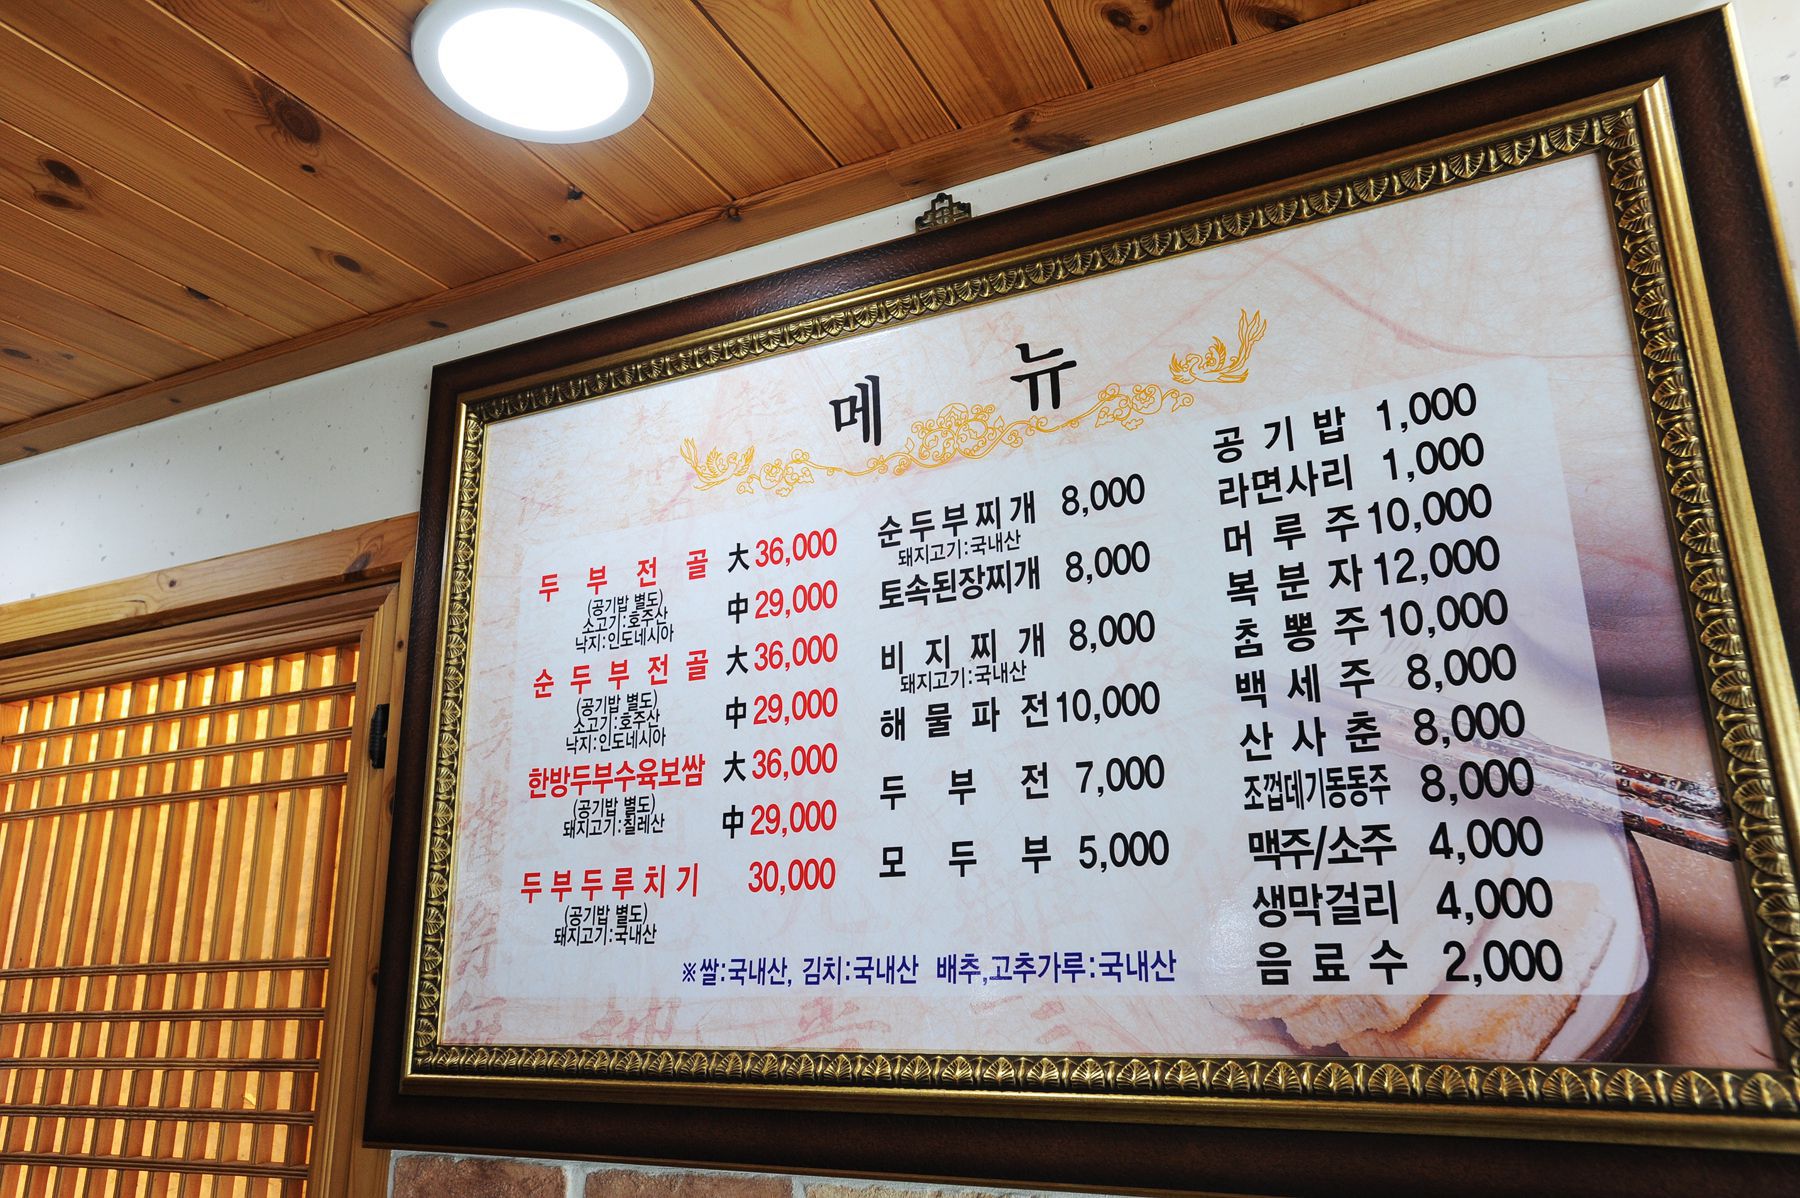 메 뉴
두 부 전 골 大 36,000
(공기밥 별도) 中 29,000
소고기:호주산
낙지:인도네시아
순 두 부 전 골 大 36,000
(공기밥 별도) 中 29,000
소고기:호주산
낙지:인도네시아
한방두부수육보쌈 大 36,000
(공기밥 별도) 中 29,000
돼지고기:칠레산
두 부 두 루 치 기 30,000
(공기밥 별도)
돼지고기:국내산
순두부찌개 8,000
돼지고기:국내산
토속된장찌개 8,000
비 지 찌 개 8,000
돼지고기:국내산
해 물 파 전 10,000
두 부 전 7,000
모 두 부 5,000
공 기 밥 1,000
라면사리 1,000
머 루 주 10,000
복 분 자 12,000
촘 뽕 주 10,000
백 세 주 8,000
산 사 춘 8,000
조껍데기동동주 8,000
맥주/소주 4,000
생막걸리 4,000
음 료 수 2,000
※쌀:국내산, 김치:국내산 배추,고추가루:국내산